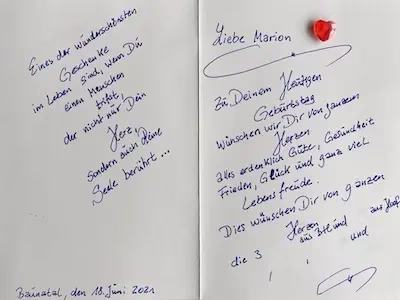 Eines der wunderschönsten
Geschenke
im Leben sind, wenn Du
einen Menschen
trifst,
der nicht nur Dein
Herz,
sondern auch Deine
Seele berührt...
Baunatal, den 18. Juni 2021
Liebe Marion
Zu Deinem Heutigen
Geburtstag
wünschen wir Dir von ganzem
Herzen
alles erdenklich Gute, Gesundheit
Frieden, Glück und ganz viel
Lebensfreude.
Dies wünschen Dir von ganzen
Herzen
die 3 aus und aus
, , und